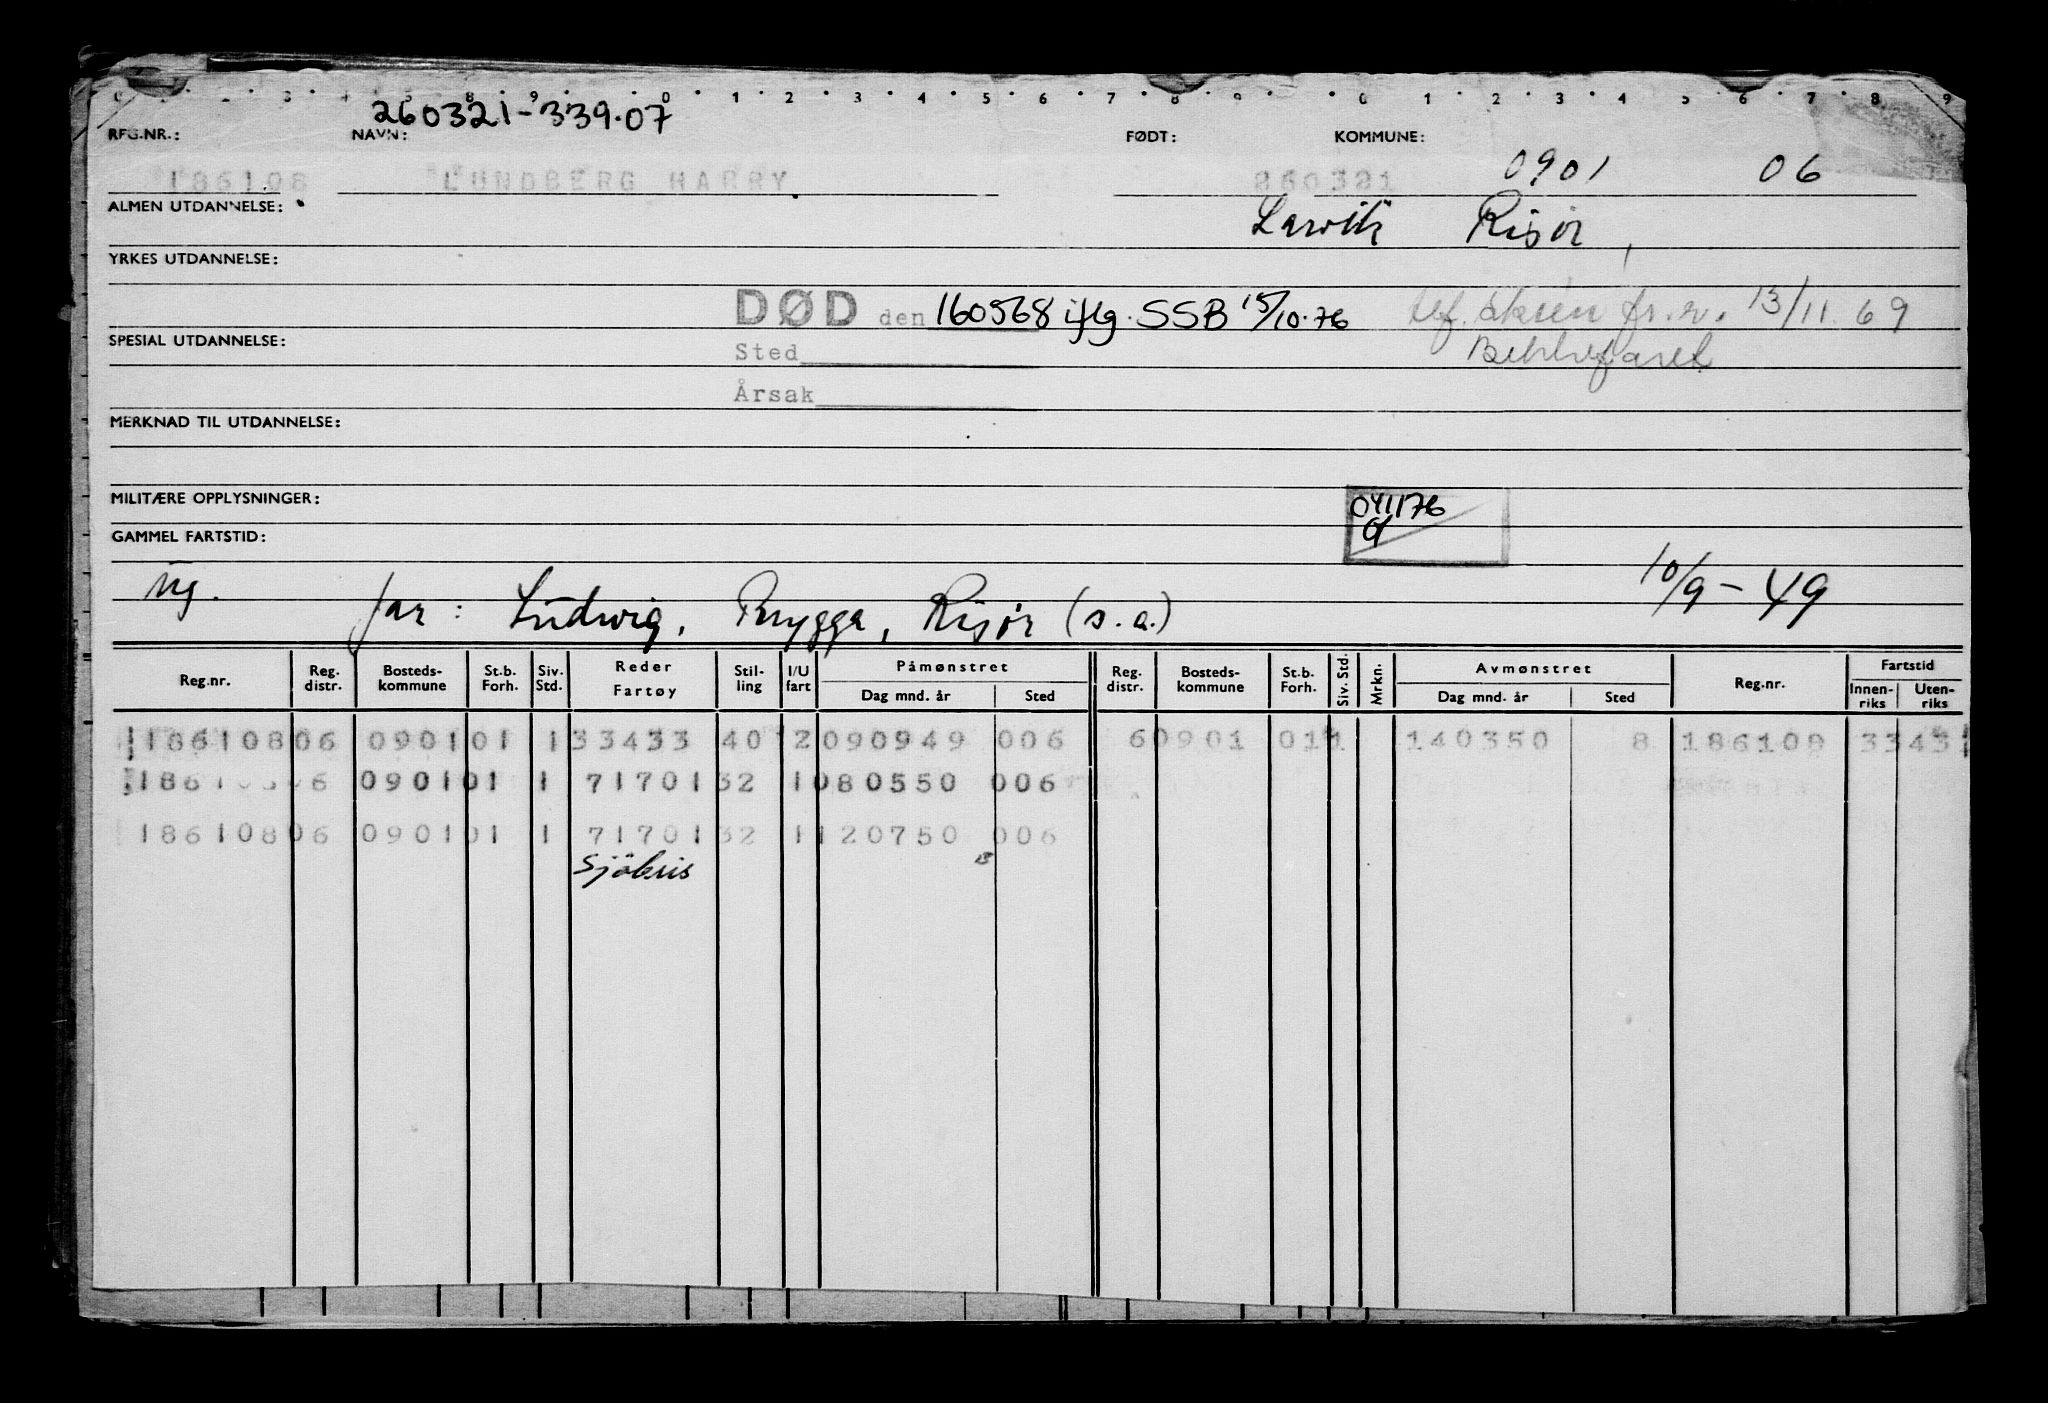 260321-339.07
RFG.NR.: NAVN: FØDT: KOMMUNE:
186108 LUNDBERG HARRY 260321 0901 06
ALMEN UTDANNELSE: Larvik Risør
YRKES UTDANNELSE:
DØD den 160568 iflg. SSB 15/10.76 13/11.69
SPESIAL UTDANNELSE: Sted
Årsak
MERKNAD TIL UTDANNELSE:
MILITÆRE OPPLYSNINGER: 041176
GAMMEL FARTSTID:
ug. far: Ludwig, Brygga, Risør (s.a.) 10/9-49
Reg.nr. Reg. distr. Bosteds-kommune St.b. Forh. Siv. Std. Reder Fartøy Stil-ling I/U fart Påmønstret Dag mnd. år Sted Reg. distr. Bosteds-kommune St.b. Forh. Siv. Std. Mrkn. Avmønstret Dag mnd. år Sted Reg.nr. Fartstid Innen-riks Uten-riks
186108 06 0901 01 1 33433 40 2 090949 006 6 0901 01 1 140350 8 186108 33433
06 0901 01 1 71701 32 1 080550 006
186108 06 0901 01 1 71701 32 1 120750 006
Sjöbris